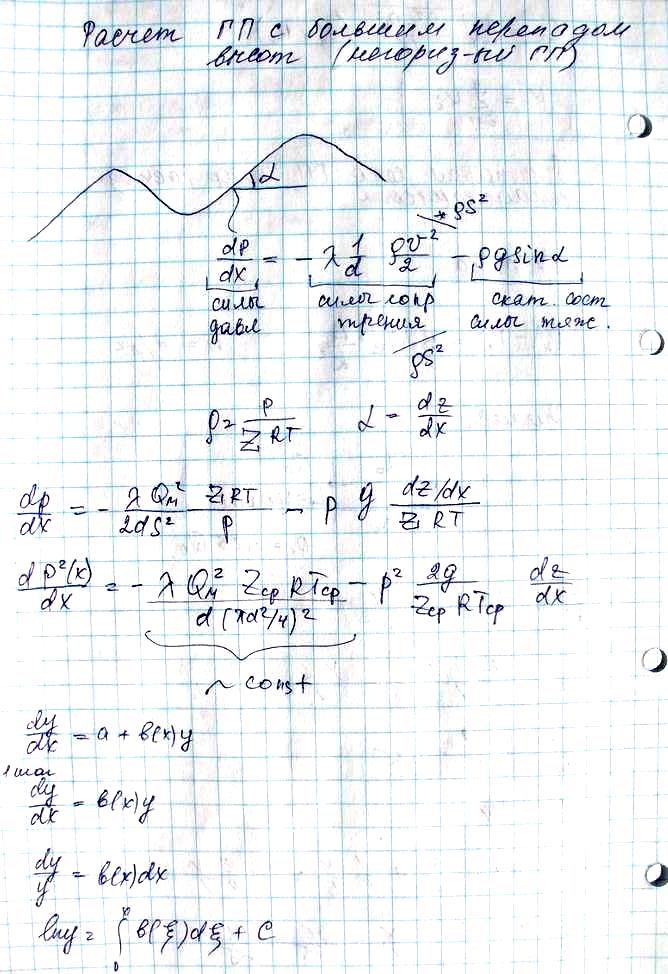 Расчет ГП с большим перепадом
высот (негориз-ый ГП)
α
dp/dx = - λ 1/d ρv²/2 - ρg sinα
* ρS²
силы давл
силы сопр трения
скат. сост силы тяж.
ρS²
ρ = p/(Z RT)    α = dz/dx
dp/dx = - (λ Qм²)/(2dS²) (ZRT)/p - p g (dz/dx)/(Z RT)
dp²(x)/dx = - (λ Qм² Zср RTср)/(d(πd²/4)²) - p² 2g/(Zср RTср) dz/dx
~ const
dy/dx = a + b(x)y
1 шаг
dy/dx = b(x)y
dy/y = b(x)dx
lny = ∫₀ˣ b(ξ)dξ + C